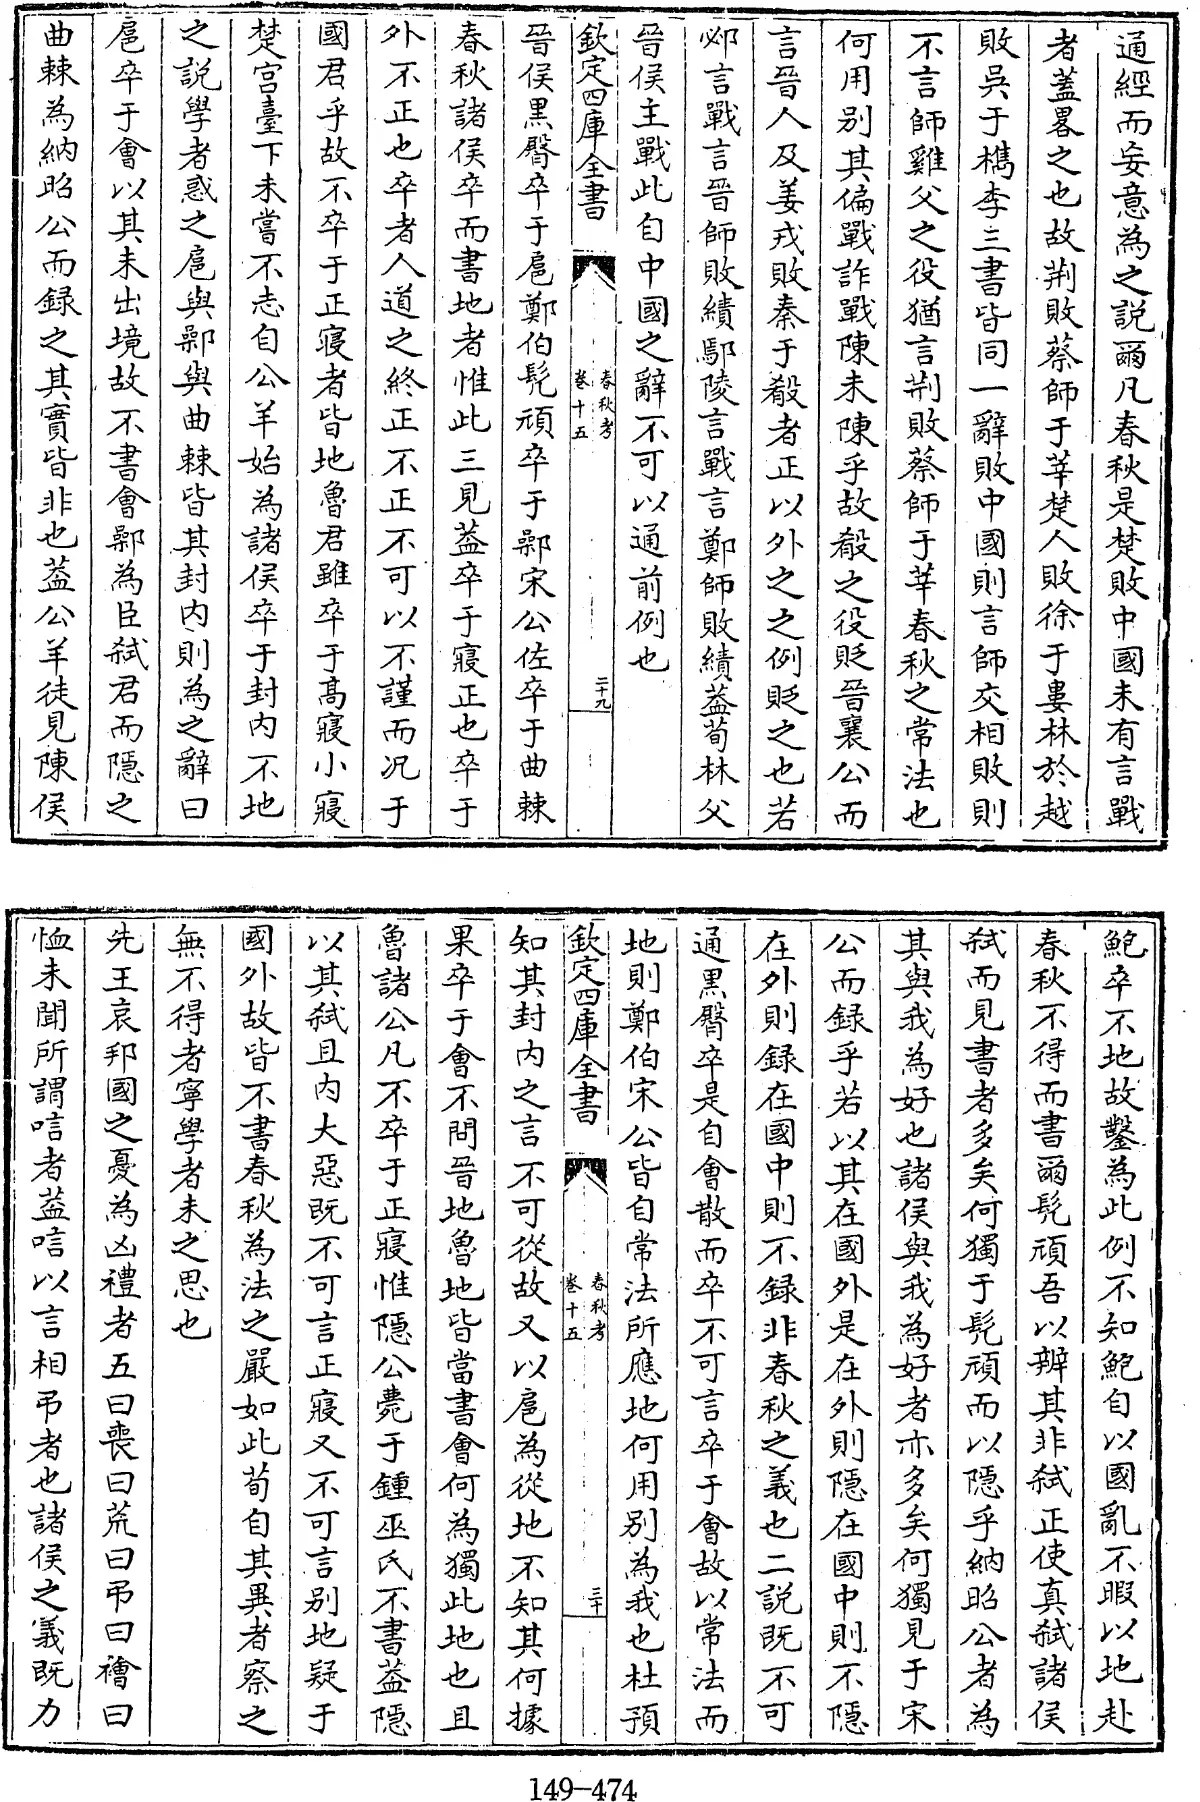 通經而妄意為之說爾凡春秋是楚敗中國未有言戰
者蓋畧之也故荆敗蔡師于莘楚人敗徐于婁林於越
敗吳于檇李三書皆同一辭敗中國則言師交相敗則
不言師雞父之役猶言荆敗蔡師于莘春秋之常法也
何用別其偏戰詐戰陳未陳乎故殽之役貶晉襄公而
言晉人及姜戎敗秦于殽者正以外之之例貶之也若
邲言戰言晉師敗績鄢陵言戰言鄭師敗績葢荀林父
晉侯主戰此自中國之辭不可以通前例也
欽定四庫全書
春秋考
卷十五
二十九
晉侯黒臀卒于扈鄭伯髠頑卒于鄵宋公佐卒于曲棘
春秋諸侯卒而書地者惟此三見葢卒于寢正也卒于
外不正也卒者人道之終正不正不可以不謹而况于
國君乎故不卒于正寢者皆地魯君雖卒于髙寢小寢
楚宫臺下未嘗不志自公羊始為諸侯卒于封内不地
之說學者惑之扈與鄵與曲棘皆其封内則為之辭曰
扈卒于會以其未出境故不書會鄵為臣弑君而隱之
曲棘為納昭公而録之其實皆非也葢公羊徒見陳侯
鮑卒不地故鑿為此例不知鮑自以國亂不暇以地赴
春秋不得而書爾髠頑吾以辨其非弑正使真弑諸侯
弑而見書者多矣何獨于髠頑而以隱乎納昭公者為
其與我為好也諸侯與我為好者亦多矣何獨見于宋
公而録乎若以其在國外是在外則隱在國中則不隱
在外則録在國中則不録非春秋之義也二說既不可
通黒臀卒是自會散而卒不可言卒于會故以常法而
地則鄭伯宋公皆自常法所應地何用別為我也杜預
欽定四庫全書
春秋考
卷十五
三十
知其封内之言不可從故又以扈為從地不知其何據
果卒于會不問晉地魯地皆當書會何為獨此地也且
魯諸公凡不卒于正寢惟隱公薨于鍾巫氏不書葢隱
以其弑且内大惡既不可言正寢又不可言別地疑于
國外故皆不書春秋為法之嚴如此茍自其異者察之
無不得者寧學者未之思也
先王哀邦國之憂為凶禮者五曰喪曰荒曰弔曰禬曰
恤未聞所謂唁者葢唁以言相弔者也諸侯之義既力
149-474